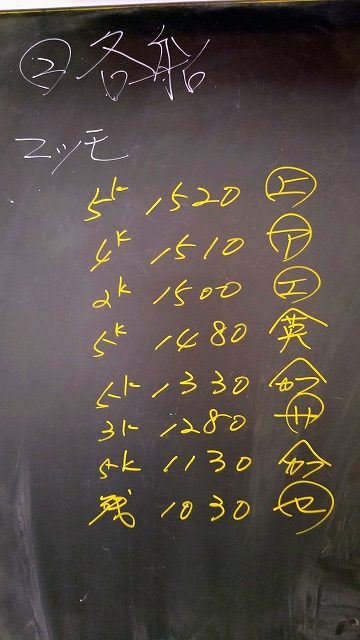 ② 各船
マツモ
5K 1520 ㊤
4K 1510 ㋐
2K 1500 ㋓
5K 1480 英
5K 1330 カ
3K 1280 ㋚
5K 1130 カ
残 1030 ㋝